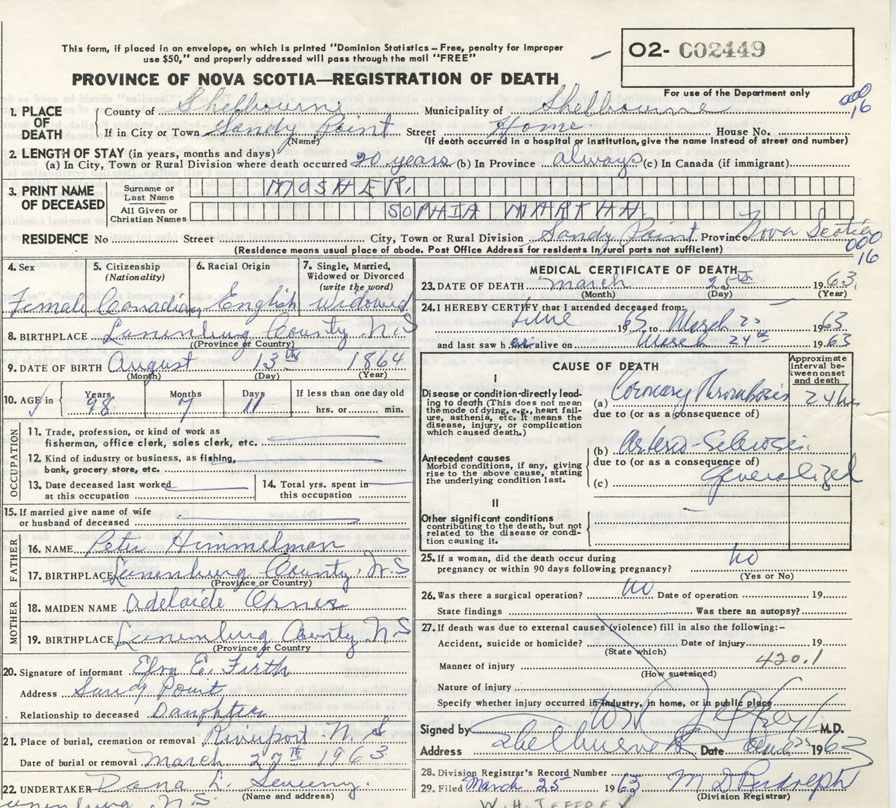 This form, if placed in an envelope, on which is printed "Dominion Statistics – Free, penalty for improper
use $50," and properly addressed will pass through the mail "FREE"
O2- C02449
PROVINCE OF NOVA SCOTIA—REGISTRATION OF DEATH
For use of the Department only
1. PLACE OF DEATH
County of Shelbourne Municipality of Shelbourne
If in City or Town Sandy Point Street Home House No.
(Name) (If death occurred in a hospital or institution, give the name instead of street and number)
000
16
2. LENGTH OF STAY (in years, months and days)
(a) In City, Town or Rural Division where death occurred 20 years (b) In Province always (c) In Canada (if immigrant)
3. PRINT NAME OF DECEASED
Surname or Last Name MOSHER.
All Given or Christian Names SOPHIA MARTHA
RESIDENCE No Street City, Town or Rural Division Sandy Point Province Nova Scotia
(Residence means usual place of abode. Post Office Address for residents in rural parts not sufficient)
000
16
4. Sex Female
5. Citizenship (Nationality) Canadian
6. Racial Origin English
7. Single, Married, Widowed or Divorced (write the word) Widowed
8. BIRTHPLACE Lunenburg County N.S
(Province or Country)
9. DATE OF BIRTH August 13th 1864
(Month) (Day) (Year)
10. AGE in Years 98 Months 7 Days 11 If less than one day old
hrs. or min.
OCCUPATION
11. Trade, profession, or kind of work as
fisherman, office clerk, sales clerk, etc.
12. Kind of industry or business, as fishing,
bank, grocery store, etc.
13. Date deceased last worked
at this occupation
14. Total yrs. spent in
this occupation
15. If married give name of wife
or husband of deceased
FATHER
16. NAME Peter Himmelman
17. BIRTHPLACE Lunenburg County, N.S
(Province or Country)
MOTHER
18. MAIDEN NAME Adelaide
19. BIRTHPLACE Lunenburg County N.S
(Province or Country)
20. Signature of informant Elva E. Firth
Address Sandy Point
Relationship to deceased Daughter
21. Place of burial, cremation or removal Riverport N.S
Date of burial or removal March 27th 1963
22. UNDERTAKER Dana L.
(Name and address)
N.S.
MEDICAL CERTIFICATE OF DEATH
23. DATE OF DEATH March 25th 1963
(Month) (Day) (Year)
24. I HEREBY CERTIFY that I attended deceased from:
June 19 to March 25 1963
and last saw her alive on March 24th 1963
CAUSE OF DEATH
Approximate interval between onset and death
I
Disease or condition directly leading to death (This does not mean the mode of dying, e.g., heart failure, asthenia, etc. It means the disease, injury, or complication which caused death.)
(a) Coronary Thrombosis 24 hrs
due to (or as a consequence of)
Antecedent causes
Morbid conditions, if any, giving rise to the above cause, stating the underlying condition last.
(b) Arterio-Sclerosis.
due to (or as a consequence of)
(c) Generalized
II
Other significant conditions
contributing to the death, but not related to the disease or condition causing it.
25. If a woman, did the death occur during
pregnancy or within 90 days following pregnancy? No
(Yes or No)
26. Was there a surgical operation? No Date of operation 19
State findings Was there an autopsy?
27. If death was due to external causes (violence) fill in also the following:—
Accident, suicide or homicide? Date of injury 19
(State which)
Manner of injury 420.1
(How sustained)
Nature of injury
Specify whether injury occurred in industry, in home, or in public place
Signed by M.D.
Address Shelburne Date 1963
28. Division Registrar's Record Number
29. Filed March 25 1963
(Division Registrar)
W.H. JEFFREY